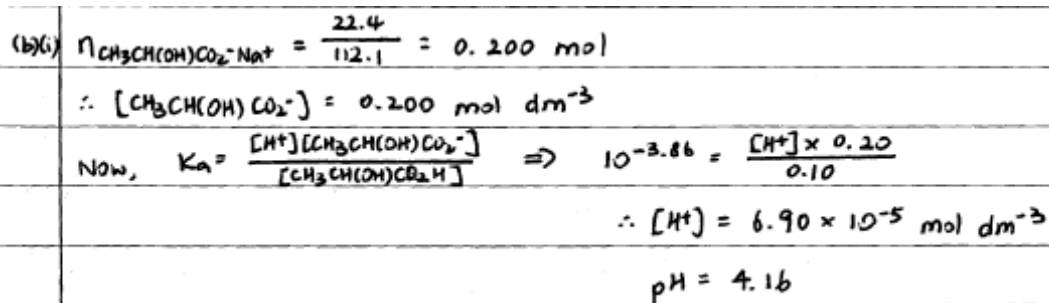 (b)(i) n_CH₃CH(OH)CO₂⁻Na⁺ = 22.4/112.1 = 0.200 mol
∴ [CH₃CH(OH)CO₂⁻] = 0.200 mol dm⁻³
Now, Ka = [H⁺][CH₃CH(OH)CO₂⁻]/[CH₃CH(OH)CO₂H] ⇒ 10⁻³·⁸⁶ = [H⁺] × 0.20/0.10
∴ [H⁺] = 6.90 × 10⁻⁵ mol dm⁻³
pH = 4.16